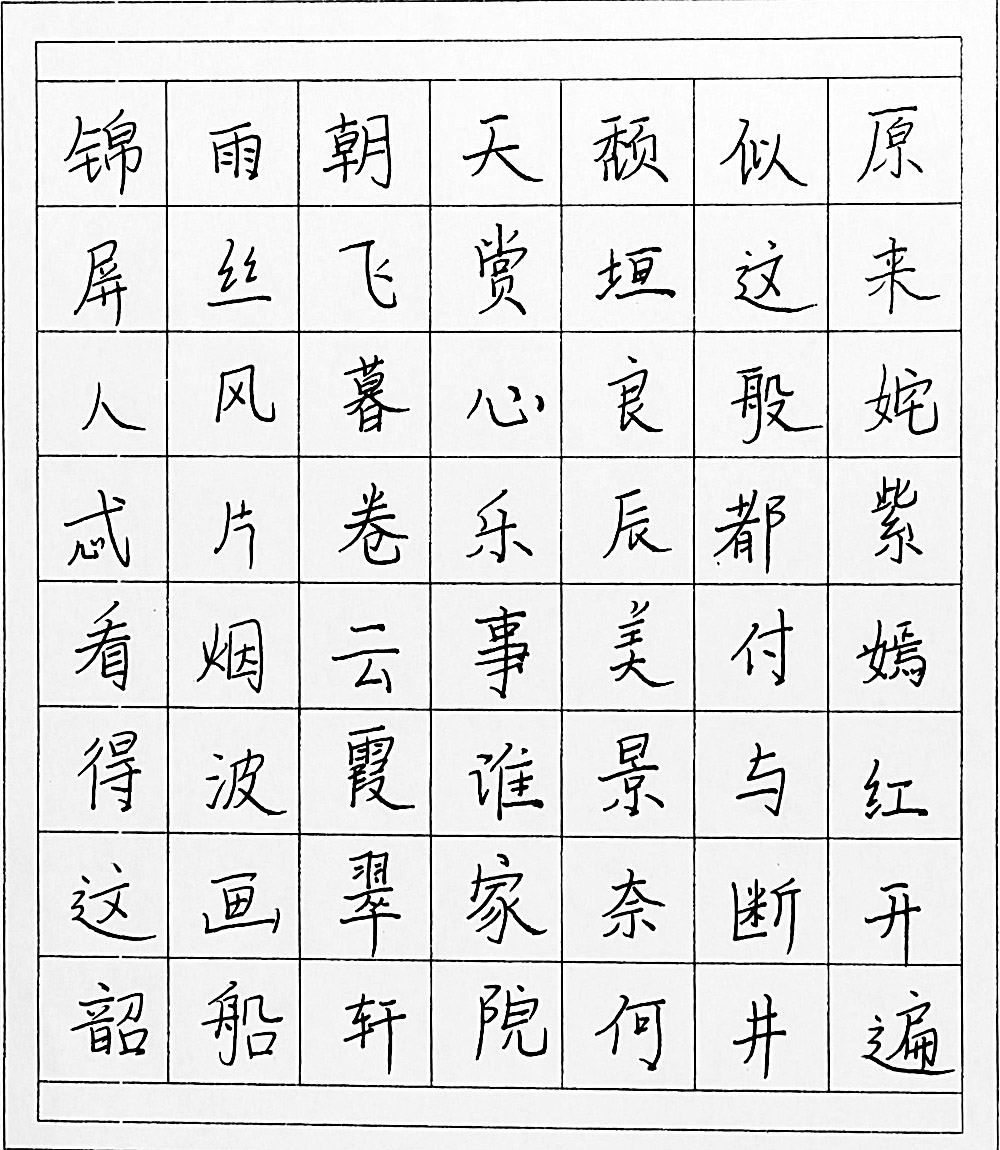 原来姹紫嫣红开遍
似这般都付与断井
颓垣良辰美景奈何
天赏心乐事谁家院
朝飞暮卷云霞翠轩
雨丝风片烟波画船
锦屏人忒看得这韶